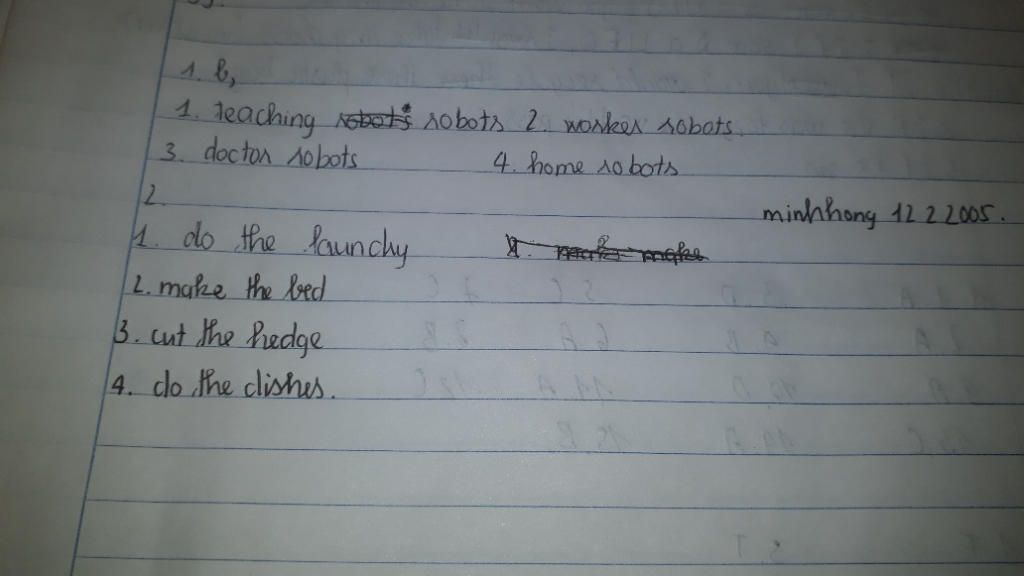 1. b,
1. teaching robots 2. worker robots.
3. doctor robots 4. home robots
2.
minhhong 12 2 2005.
1. do the launchy
2. make the bed
3. cut the hedge
4. do the dishes.